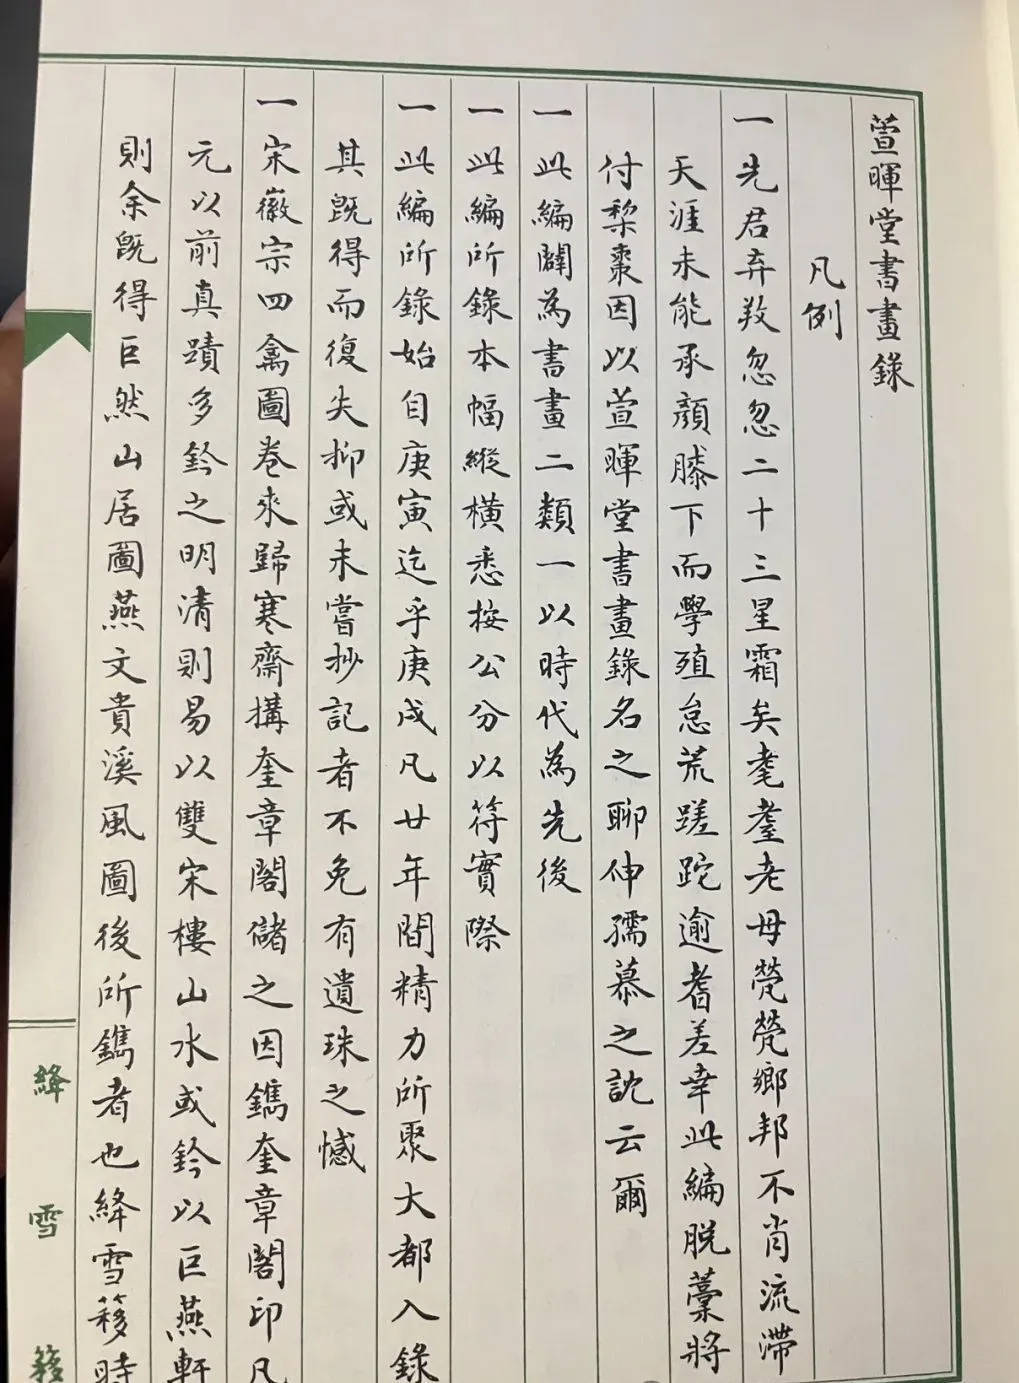 萱暉堂書畫錄
凡例
一先君弃敎忽忽二十三星霜矣耄耋老母煢煢鄉邦不肖流滯
天涯未能承顏膝下而學殖怠荒蹉跎逾耆差幸此編脫藁將
付棃棗因以萱暉堂書畫錄名之聊伸孺慕之忱云爾
一此編闢為書畫二類一以時代為先後
一此編所錄本幅縱橫悉按公分以符實際
一此編所錄始自庚寅迄乎庚戌凡廿年間精力所聚大都入錄
其既得而復失抑或未嘗抄記者不免有遺珠之憾
一宋徽宗四禽圖卷來歸寒齋搆奎章閣儲之因鐫奎章閣印凡
元以前真蹟多鈐之明清則易以雙宋樓山水或鈐以巨燕軒
則余既得巨然山居圖燕文貴溪風圖後所鐫者也絳雪簃時
絳雪簃